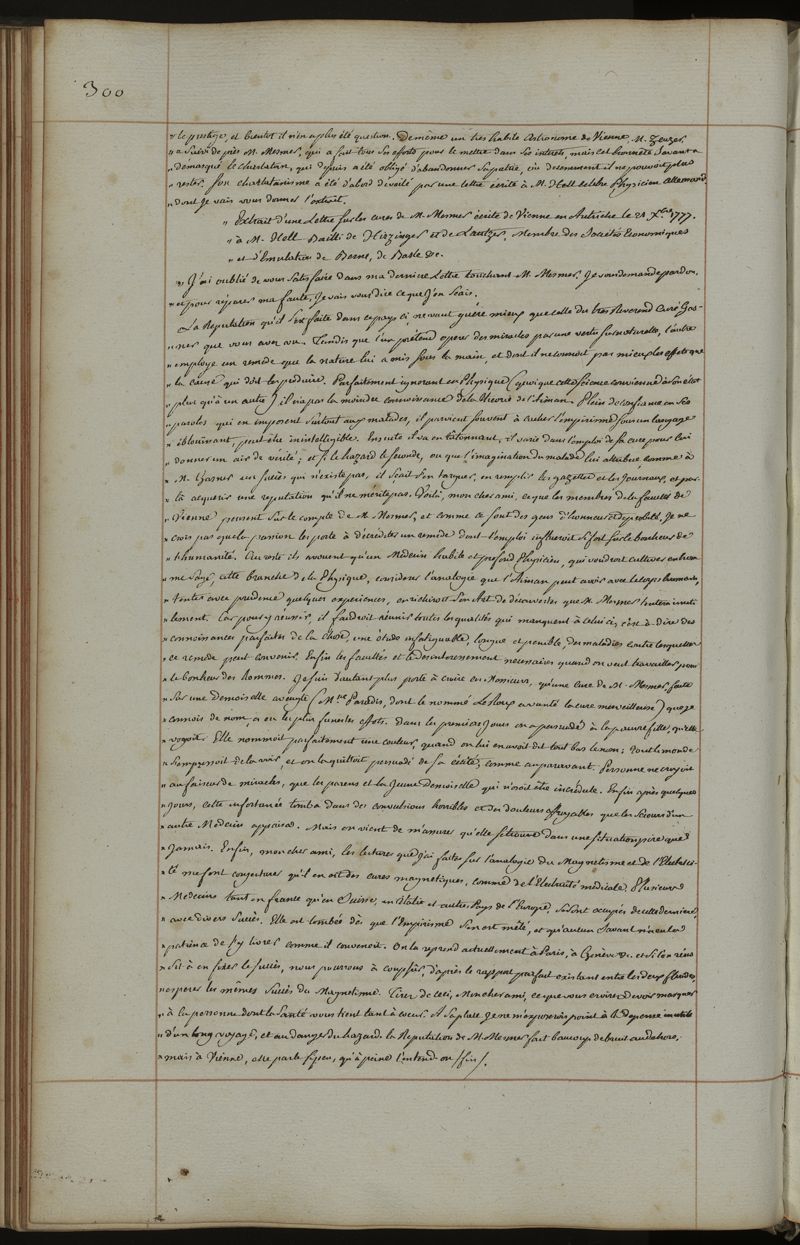 300
" le prestige, et bientot il n'en a plus été question. De même un très habile Astronome de Vienne M.
" a suivi de près M. Mesmer, qui a fait tous ses efforts pour le mettre dans ses interets, mais cet honnete Savant a
" demasqué le charlatan, qui depuis a été obligé d'abandonner sa patrie, où decemment il ne pouvoit plus
" rester. Son charlatanisme a été d'abord dévoilé par une lettre écrite à M. Holl celebre Physicien allemand,
" dont je vais vous donner l'extrait.
" Extrait d'une Lettre sur les cures de M. Mesmer écrite de Vienne en Autriche le 21 Xbre 1777.
" à M. Holl Bailli de et de Membre des Societés Economiques
" et d'Emulation de Berne, de Basle &c.
" J'ai oublié de vous satisfaire dans ma derniere Lettre touchant M. Mesmer. Je vous demande pardon,
" et pour réparer ma faute, je vais vous dire ce que j'en sçais.
" La Reputation qu'il s'est faite dans ce pays ci, ne vaut guère mieux que celle du très Reverend Curé Gas-
" ner que vous avez vu. Tandis que l'un prétend operer des miracles par une vertu surnaturelle, l'autre
" employe un remede que la nature lui a mis sous la main, et dont il ne connoit pas mieux les effets que
" la cause qui doit les produire. Parfaitement ignorant en Physique (quoique cette Science convienne à son état
" plus qu'à un autre) il n'a pas la moindre connoissance de la theorie de l'aiman. Plein de confiance en ses
" paroles qui en imposent surtout aux malades, il parvient souvent à cacher l'empirisme sous un langage
" éblouissant, peut être inintelligible. Ensuite il va en tâtonnant, il varie dans l'emploi de sa cure pour lui
" donner un air de verité; et si le hazard le seconde, ou que l'imagination du malade lui attribue comme à
" M. Gasner un succès qui n'existe pas, il sçait s'en targuer, en remplir les gazettes et les Journeaux, et par
" là acquerir une reputation qu'il ne mérite pas. Voilà, mon cher ami, ce que les membres de la faculté de
" Vienne pensent sur le compte de M. Mesmer, et comme ce sont des gens d'honneur et de probité, je ne
" crois pas que la passion les porte à décréditer un remede dont l'emploi influeroit si fort sur le bonheur de
" l'humanité. Au reste ils avouent qu'un Médecin habile et profond Physicien, qui voudroit cultiver en hom
" me sage, cette branche de la Physique, considerer l'analogie que l'aiman peut avoir avec le corps humain,
" tenter avec prudence quelques experiences, enrichiroit son Art de découvertes que M. Mesmer tentera inuti
" lement. Car pour y réussir, il faudroit réunir toutes les qualités qui manquent à celui ci, c'est à dire des
" connoissances parfaites de la chose, une étude infatiguable, longue et penible, des maladies contre lesquelles
" ce remede peut convenir. Enfin les facultés et le desinteressement necessaires quand on veut travailler pour
" le bonheur des hommes. Je suis d'autant plus porté à croire ces Messieurs, qu'une cure de M. Mesmer, faite
" sur une Demoiselle aveugle (Mlle Paradis, dont le nommé Le Roux a vanté la cure merveilleuse) que je
" connois de nom, a eu les plus funestes effets. Dans les premiers jours on a persuadé à la pauvre fille, qu'elle
" voyoit. Elle nommoit parfaitement une couleur, quand on lui en avoit dit tout bas le nom; tout le monde
" s'empressoit de la voir, et on la quittoit persuadé de sa cécité, comme auparavant. Personne ne croyoit
" au faiseur de miracles, que les parens et la jeune Demoiselle qui n'osoit être incrédule. Enfin après quelques
" jours, cette infortunée tomba dans des convulsions horribles et des douleurs effroyables que les secours d'un
" autre Medecin appaisa. Mais on vient de m'assurer qu'elle se trouve dans une situation pire que
" jamais. Enfin, mon cher ami, les lectures que j'ai faites sur l'analogie du Magnetisme et de l'Electrici-
" té me font conjecturer qu'il en est des cures magnétiques, comme de l'Electricité médicale. Plusieurs
" Medecins tant en france qu'en Suisse, en Italie et autres Pays de l'Europe, se sont occupés de cette derniere,
" avec divers succès. Elle est tombée dès que l'Empirisme s'en est mêlé, et qu'aucun Savant n'a eu la
" patience de s'y livrer comme il convenoit. On la reprend actuellement à Paris, à Genève &c. et si l'on réus
" sit à en fixer le succès, nous pourrons à coup sûr, d'après le rapport parfait existant entre les deux fluides,
" esperer les mêmes succès du Magnetisme. Tirez de ceci, Mon cher ami, ce que vous croirez devoir marquer
" à la personne dont la Santé vous tient tant à coeur. A sa place je ne m'exposerois point à la depense inutile
" d'un long voyage, et au danger du hazard. La Reputation de M. Mesmer fait beaucoup de bruit au dehors,
" mais à Vienne, elle parle si peu, qu'à peine l'entend-on /fin/.